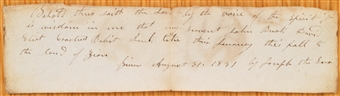 Behold thus saith the Lord by the voice of the Spirit it
is wisdom in me that my servant John Burk
take this journey this fall to
the land of Zion
Given August 31. 1831 by Joseph the Seer